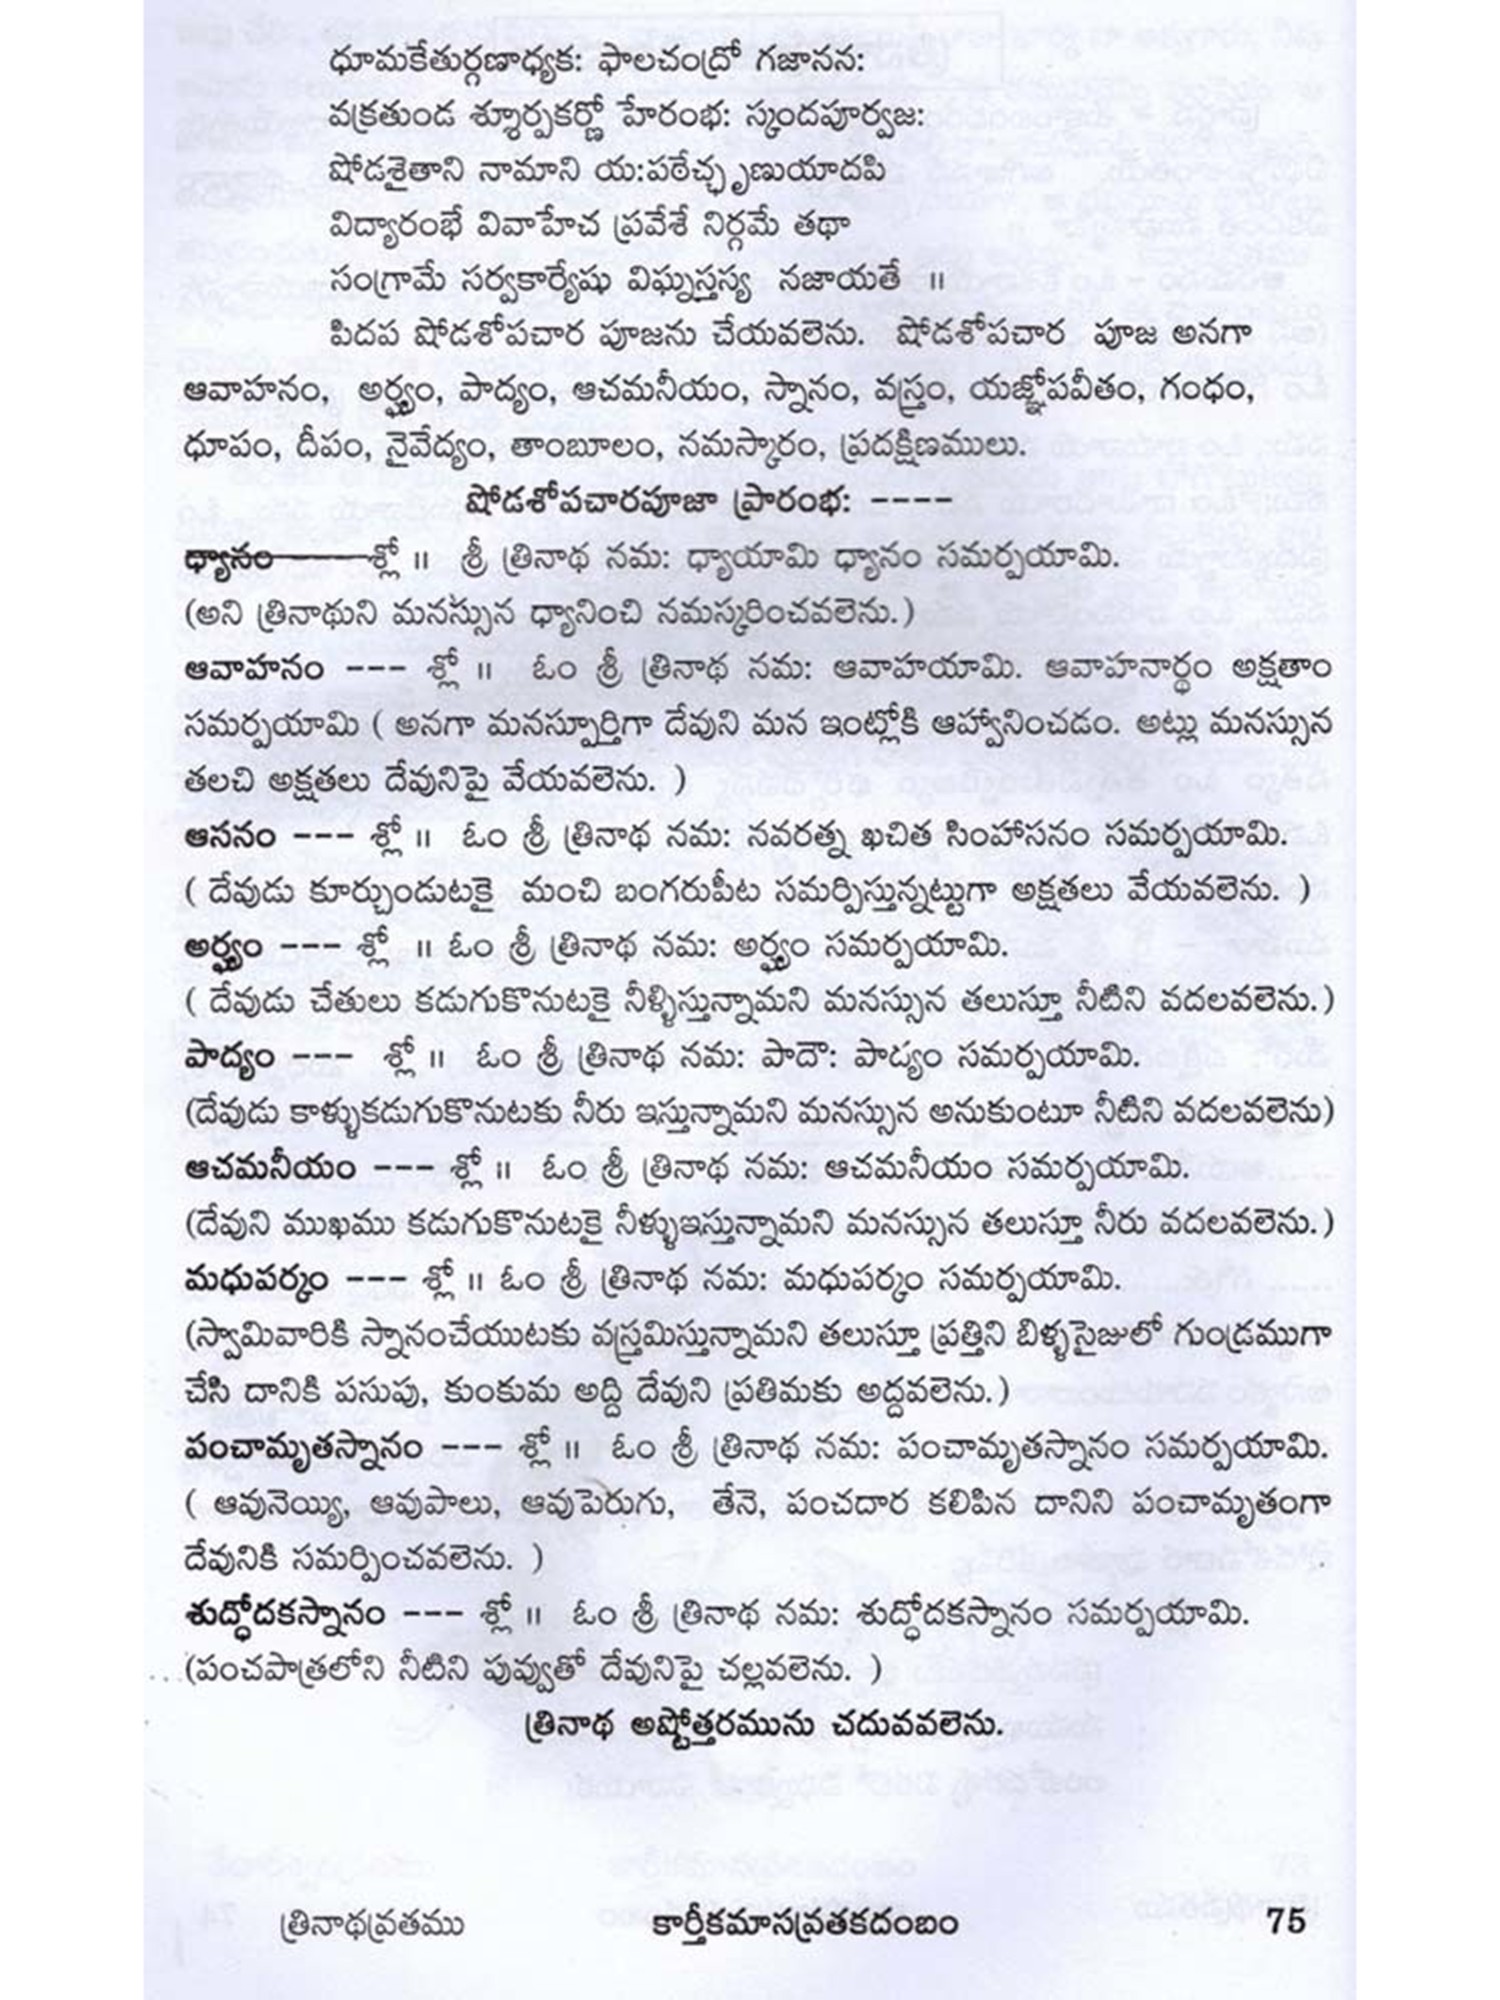 ధూమకేతుర్గణాధ్యక: ఫాలచంద్రో గజానన:
వక్రతుండ శ్శూర్పకర్ణో హేరంభ: స్కందపూర్వజ:
షోడశైతాని నామాని య:పఠేచ్ఛృణుయాదపి
విద్యారంభే వివాహేచ ప్రవేశే నిర్గమే తథా
సంగ్రామే సర్వకార్యేషు విఘ్నస్తస్య నజాయతే ॥
పిదప షోడశోపచార పూజను చేయవలెను. షోడశోపచార పూజ అనగా
ఆవాహనం, అర్ఘ్యం, పాద్యం, ఆచమనీయం, స్నానం, వస్త్రం, యజ్ఞోపవీతం, గంధం,
ధూపం, దీపం, నైవేద్యం, తాంబూలం, నమస్కారం, ప్రదక్షిణములు.
షోడశోపచారపూజా ప్రారంభ: ----
ధ్యానం———శ్లో ॥ శ్రీ త్రినాథ నమ: ధ్యాయామి ధ్యానం సమర్పయామి.
(అని త్రినాథుని మనస్సున ధ్యానించి నమస్కరించవలెను.)
ఆవాహనం --- శ్లో ॥ ఓం శ్రీ త్రినాథ నమ: ఆవాహయామి. ఆవాహనార్థం అక్షతాం
సమర్పయామి ( అనగా మనస్పూర్తిగా దేవుని మన ఇంట్లోకి ఆహ్వానించడం. అట్లు మనస్సున
తలచి అక్షతలు దేవునిపై వేయవలెను. )
ఆసనం --- శ్లో ॥ ఓం శ్రీ త్రినాథ నమ: నవరత్న ఖచిత సింహాసనం సమర్పయామి.
( దేవుడు కూర్చుండుటకై మంచి బంగరుపీట సమర్పిస్తున్నట్టుగా అక్షతలు వేయవలెను. )
అర్ఘ్యం --- శ్లో ॥ ఓం శ్రీ త్రినాథ నమ: అర్ఘ్యం సమర్పయామి.
( దేవుడు చేతులు కడుగుకొనుటకై నీళ్ళిస్తున్నామని మనస్సున తలుస్తూ నీటిని వదలవలెను.)
పాద్యం --- శ్లో ॥ ఓం శ్రీ త్రినాథ నమ: పాదౌ: పాడ్యం సమర్పయామి.
(దేవుడు కాళ్ళుకడుగుకొనుటకు నీరు ఇస్తున్నామని మనస్సున అనుకుంటూ నీటిని వదలవలెను)
ఆచమనీయం --- శ్లో ॥ ఓం శ్రీ త్రినాథ నమ: ఆచమనీయం సమర్పయామి.
(దేవుని ముఖము కడుగుకొనుటకై నీళ్ళుఇస్తున్నామని మనస్సున తలుస్తూ నీరు వదలవలెను.)
మధుపర్కం --- శ్లో ॥ ఓం శ్రీ త్రినాథ నమ: మధుపర్కం సమర్పయామి.
(స్వామివారికి స్నానంచేయుటకు వస్త్రమిస్తున్నామని తలుస్తూ ప్రత్తిని బిళ్ళసైజులో గుండ్రముగా
చేసి దానికి పసుపు, కుంకుమ అద్ది దేవుని ప్రతిమకు అద్దవలెను.)
పంచామృతస్నానం --- శ్లో ॥ ఓం శ్రీ త్రినాథ నమ: పంచామృతస్నానం సమర్పయామి.
( ఆవునెయ్యి, ఆవుపాలు, ఆవుపెరుగు, తేనె, పంచదార కలిపిన దానిని పంచామృతంగా
దేవునికి సమర్పించవలెను. )
శుద్ధోదకస్నానం --- శ్లో ॥ ఓం శ్రీ త్రినాథ నమ: శుద్ధోదకస్నానం సమర్పయామి.
(పంచపాత్రలోని నీటిని పువ్వుతో దేవునిపై చల్లవలెను. )
త్రినాథ అష్టోత్తరమును చదువవలెను.
త్రినాథవ్రతము కార్తీకమాసవ్రతకదంబం 75